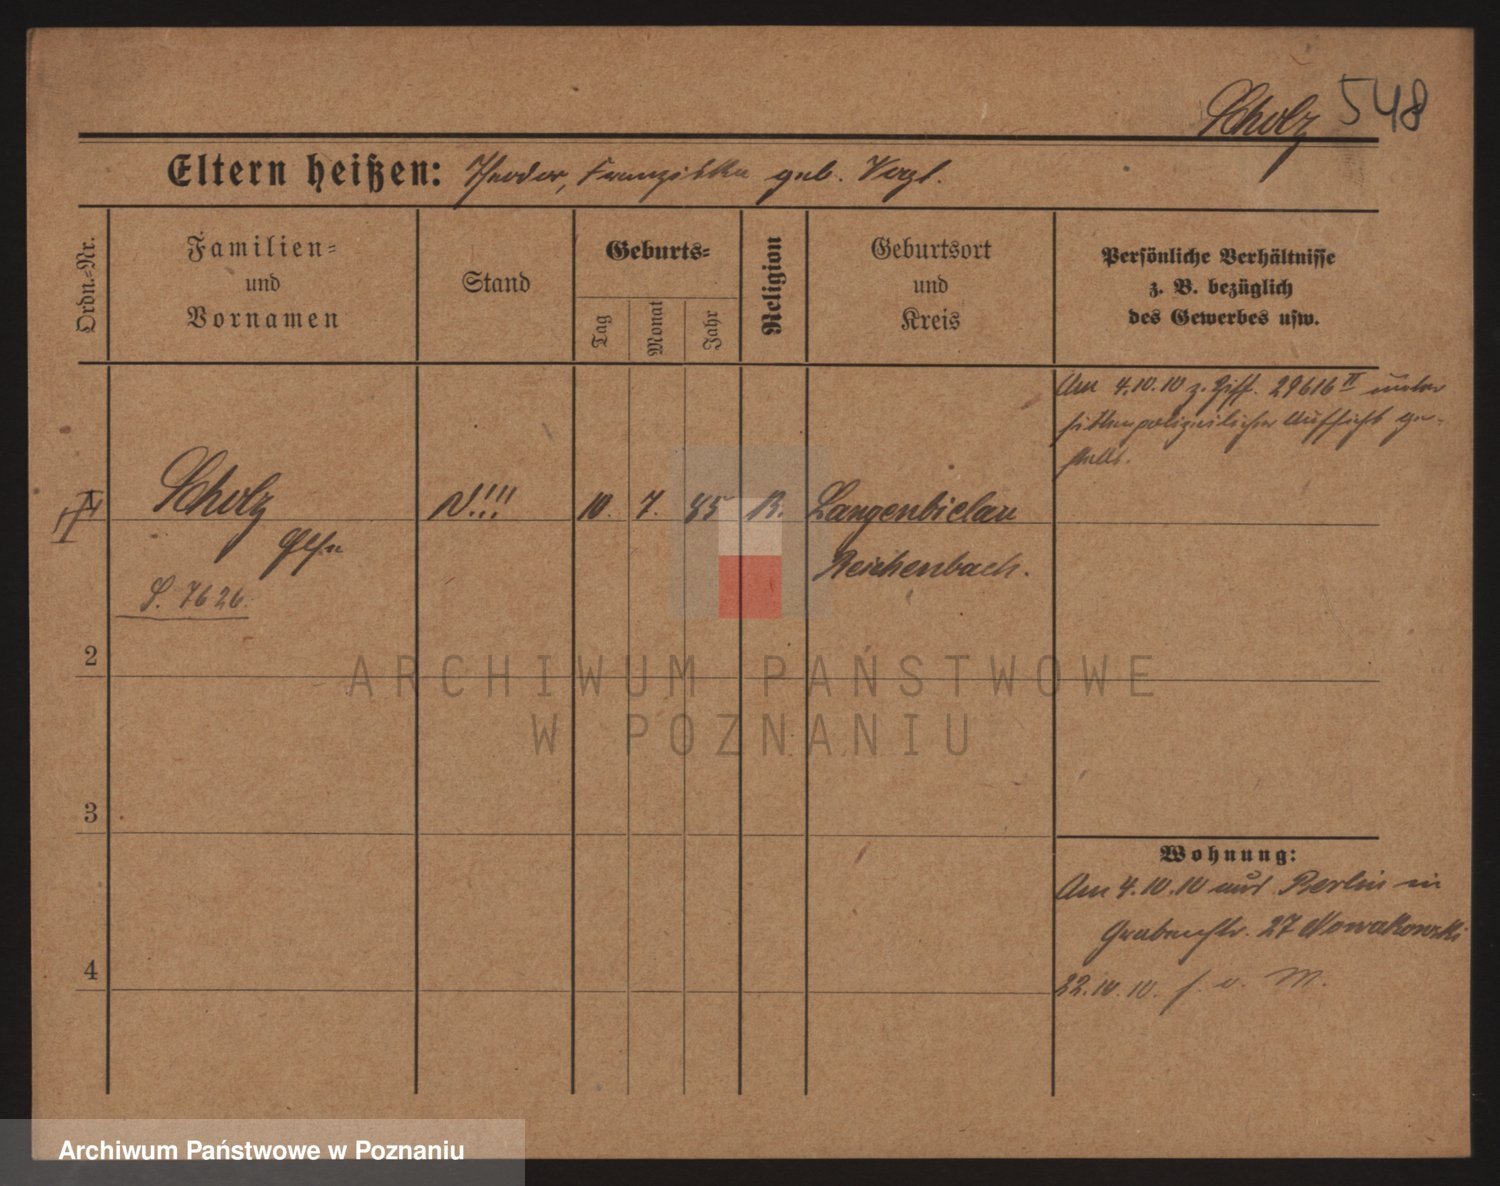 Scholz 548
Eltern heißen: Theodor, Franziska geb. Vogl.
Ordn.=Nr.
Familien=
und
Vornamen
Stand
Geburts=
Tag
Monat
Jahr
Religion
Geburtsort
und
Kreis
Persönliche Verhältnisse
z. B. bezüglich
des Gewerbes usw.
Am 4.10.10 z. Ziff. 29616 II unter
sittenpolizeilicher Aufsicht ge-
stellt.
Scholz 10. 7. 85 R. Langenbielau
Else Reichenbach.
S. 7626.
2
3
4
Wohnung:
Am 4.10.10 aus Berlin in
Grabenstr. 27 Nowakowski
22.10.10. f. v. M.
ARCHIWUM PAŃSTWOWE
W POZNANIU
Archiwum Państwowe w Poznaniu